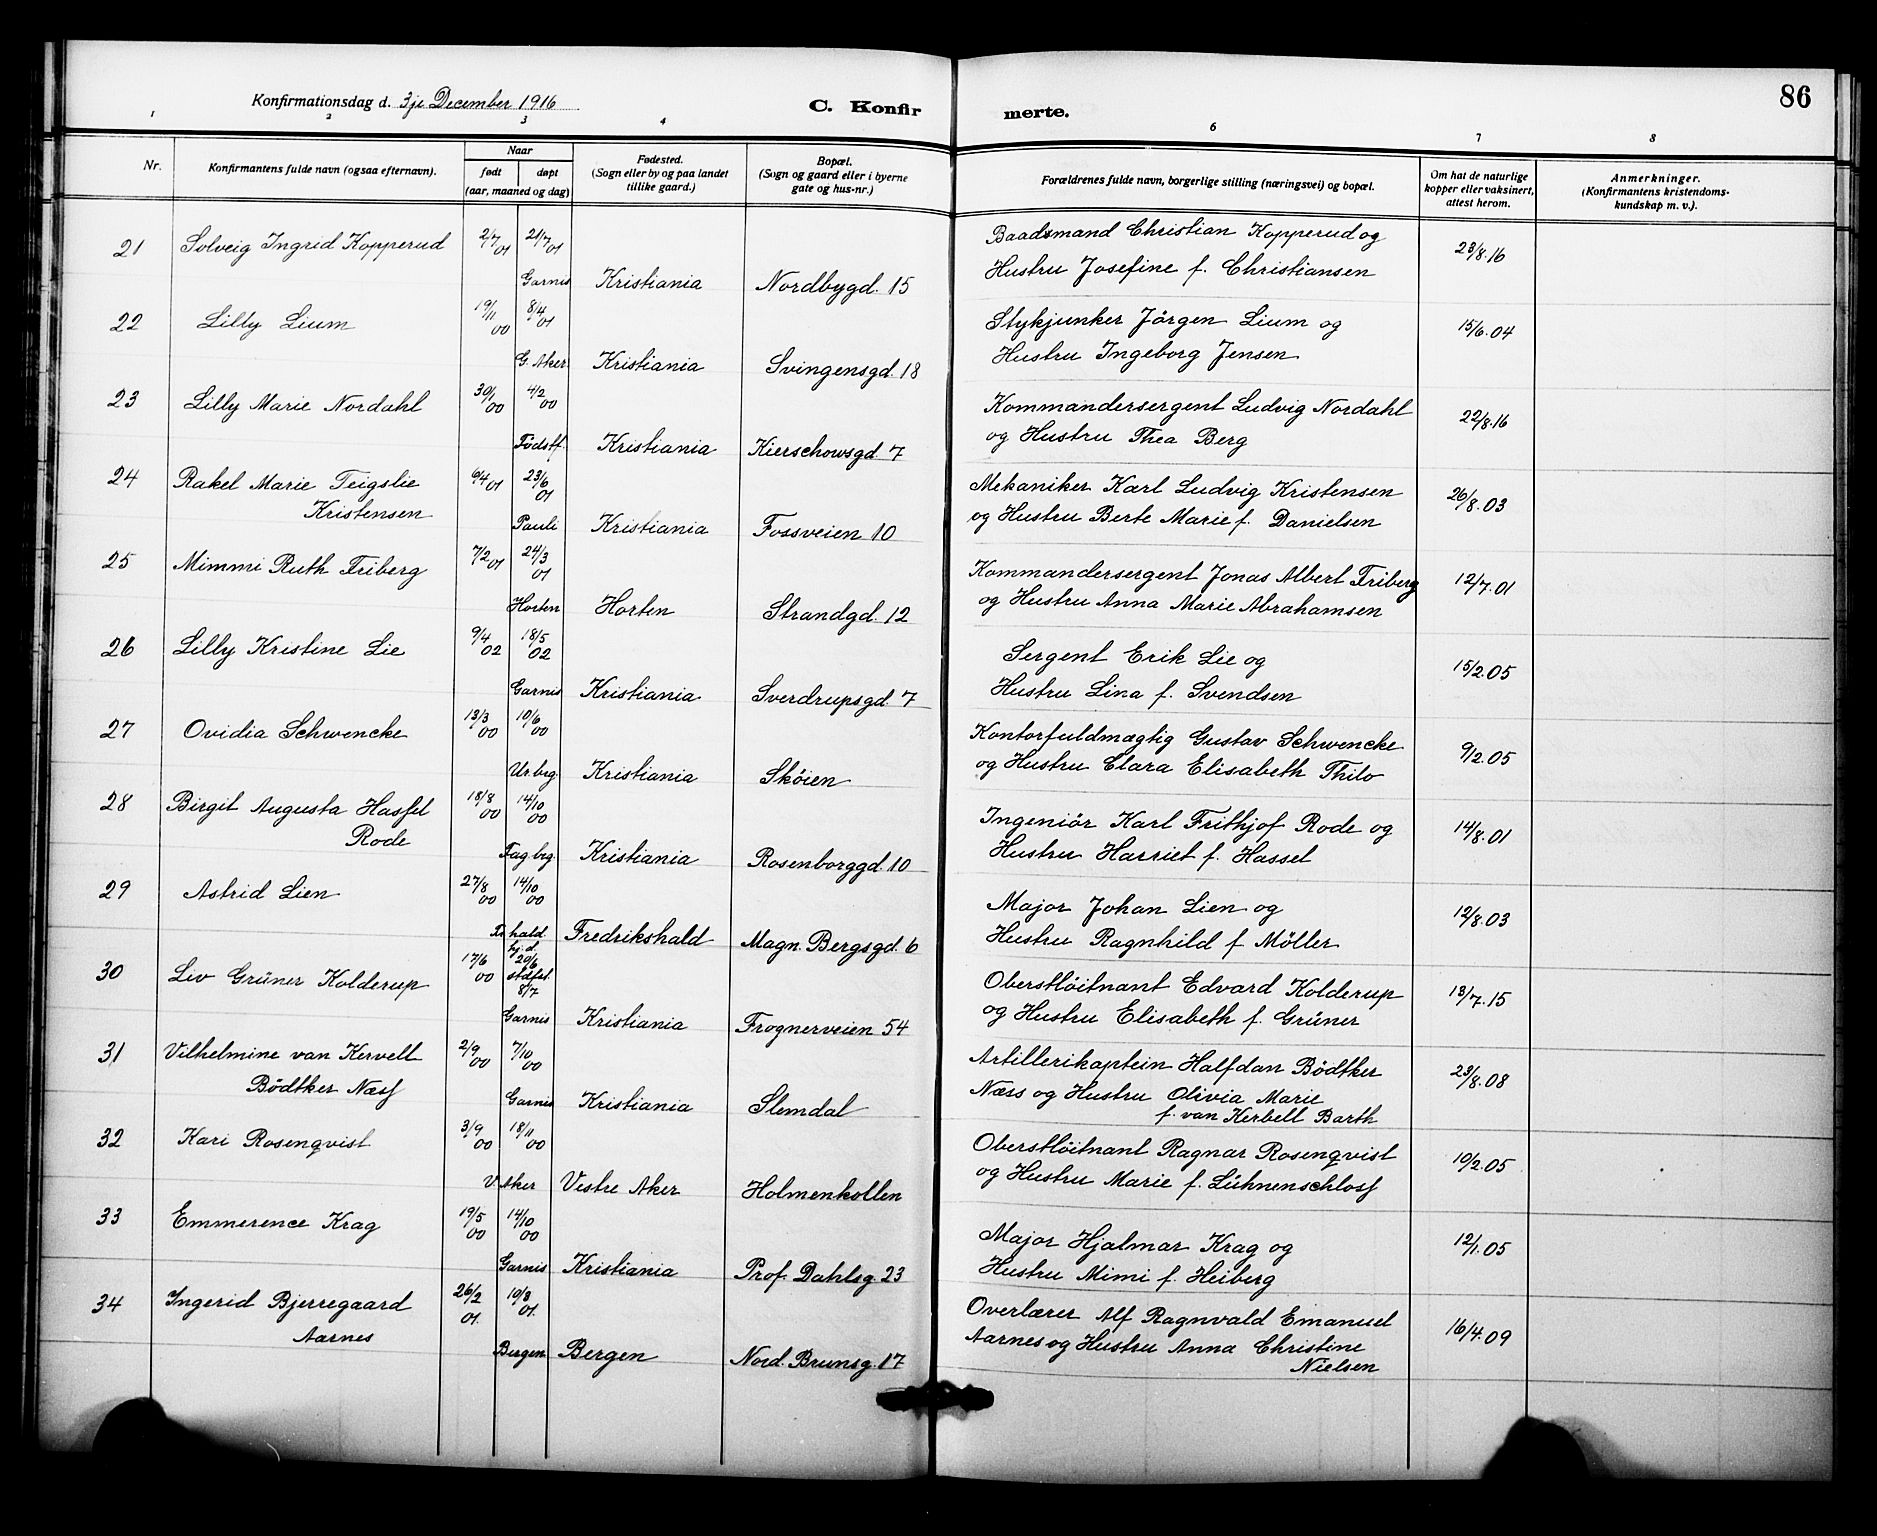 86
Konfirmationsdag d. 3je December 1916 C. Konfir merte.
1 2 3 4 6 7 8
Nr. Konfirmantens fulde navn (ogsaa efternavn). Naar født døpt (aar, maaned og dag) Fødested. (Sogn eller by og paa landet tillike gaard.) Bopæl. (Sogn og gaard eller i byerne gate og hus-nr.) Forældrenes fulde navn, borgerlige stilling (næringsvei) og bopæl. Om hat de naturlige kopper eller vaksinert, attest herom. Anmerkninger. (Konfirmantens kristendomskundskap m. v.).
21 Solveig Ingrid Kopperud 2/7 01 21/7 01 Baadsmand Christian Kopperud og 23/8.16
Garnis Kristiania Nordbygd. 15 Hustru Josefine f. Christiansen
22 Lilly Lium 19/11 00 8/4 01 Stykjunker Jörgen Lium og 15/6.04
G. Aker. Kristiania Svingensgd. 18 Hustru Ingeborg Jensen
23 Lilly Marie Nordahl 30/1 00 4/2 00 Kommandersergent Ludvig Nordahl 22/8.16
Födstf. Kristiania Kierschowsgd 7 og Hustru Thea Berg
24 Rakel Marie Teigslie 6/4 01 23/6 01 Mekaniker Karl Ludvig Kristensen 26/8.03
Kristensen Pauli Kristiania Fossveien 10 og Hustru Berte Marie f. Danielsen
25 Mimmi Ruth Friberg 7/2 01 24/3 01 Kommandersergent Jonas Albert Friberg 12/7.01
Horten Horten Strandgd. 12 og Hustru Anna Marie Abrahamsen
26 Lilly Kristine Lie 9/4 02 18/5 02 Sergent Erik Lie og 15/2.05
Garnis Kristiania Sverdrupsgd. 7 Hustru Lina f. Svendsen
27 Ovidia Schwencke 13/3 00 10/6 00 Kontorfuldmægtig Gustav Schwencke 9/2.05
Ur.brg. Kristiania Sköien og Hustru Clara Elisabeth Thilo
28 Birgit Augusta Hassel 18/8 00 14/10 00 Ingeniör Karl Frithjof Rode og 14/8.01
Rode Fag.brg. Kristiania Rosenborggd. 10 Hustru Harriet f. Hassel
29 Astrid Lien 27/8 00 14/10 00 Major Johan Lien og 12/8.03
Fr. hald. Fredrikshald Magn. Bergsgd. 6 Hustru Ragnhild f Möller
30 Liv Grüner Kolderup 17/6 00 hj. d. 20/6 stdfst. 8/7 Oberstlöitnant Edvard Kolderup 13/7.15
Garnis Kristiania Frognerveien 54 og Hustru Elisabeth f. Grüner
31 Vilhelmine van Kervell 2/9 00 7/10 00 Artillerikaptein Halfdan Bödtker 23/8.08
Bödtker Næss Garnis Kristiania Slemdal Næss og Hustru Olivia Marie
f. van Kerbell Barth
32 Kari Rosenqvist 3/9 00 18/11 00 Oberstlöitnant Ragnar Rosenqvist 10/2.05
V. Aker Vestre Aker Holmenkollen og Hustru Marie f. Lühnenschloss
33 Emmerence Krag 19/5 00 14/10 00 Major Hjalmar Krag og 12/1.05
Garnis Kristiania Prof. Dahlsg. 23 Hustru Mimi f. Heiberg
34 Ingerid Bjerregaard 26/2 01. 10/3 01. Overlærer Alf Ragnvald Emanuel 16/4.09
Aarnes Bergen Bergen Nord. Brunsg. 17 Aarnes og Hustru Anna Christine
Nielsen